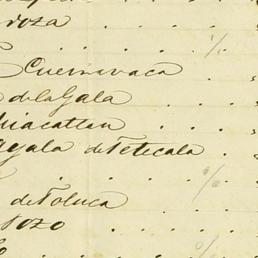 roza . . . . %
Cuernavaca
de la Gala . . . .
huacatlan . . . .
agala de Tetecala . .
. . . . %
de Toluca . . .
pozo . . . .
. . . %